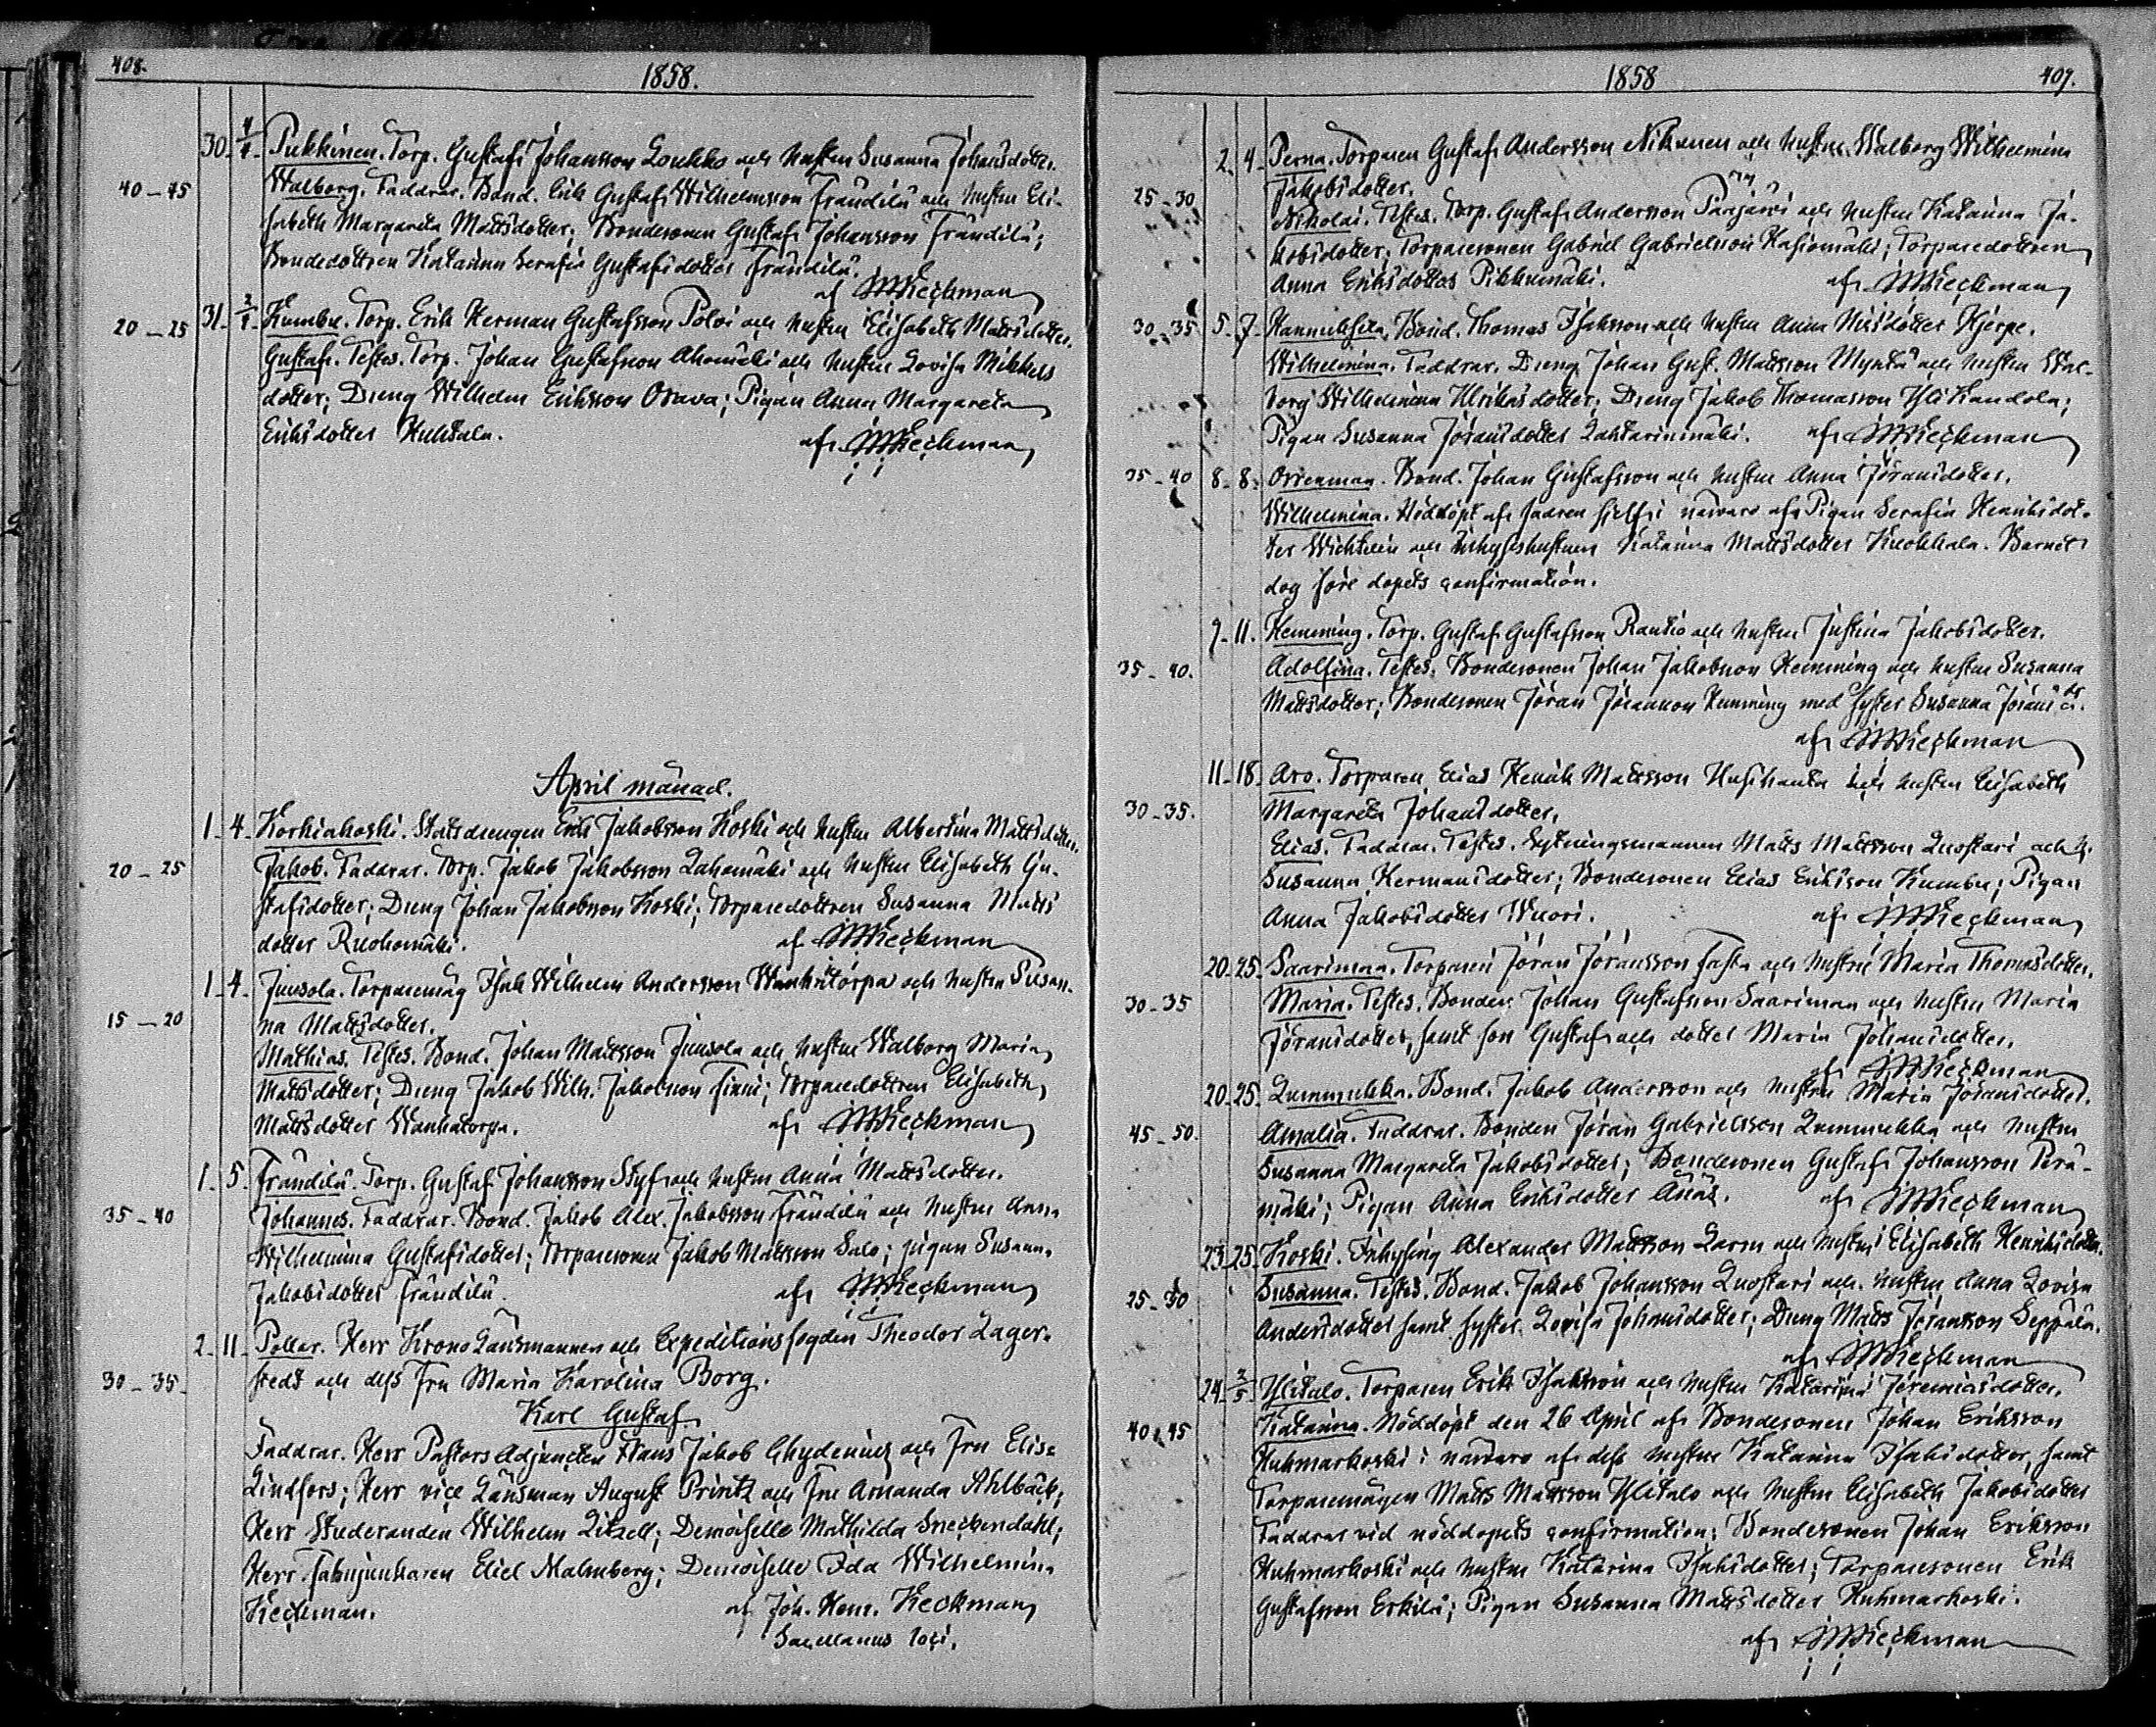 408.
1858.
30. 4/4. Pukkinen. Torp. Gustaf Johansson Loukko och hustru Susanna Johansdotter.
40-45 Walborg. Faddrar. Bond. Erik Gustaf Wilhelmsson Frändilä och hustru Eli-
sabeth Margareta Mattsdotter; Bondesonen Gustaf Johansson Frändilä;
Bondedottren Katarina Serafia Gustafsdotter Frändilä.
af Keckman
31. Kumbu. Torp. Erik Herman Gustafsson Poloi och hustru Elisabeth Mattsdotter.
20-25 Gustaf. Testes. Torp. Johan Gustafsson Ahomäki och hustru Lovisa Mikkels
dotter; Dreng Wilhelm Eriksson Orava; Pigan Anna Margareta
Eriksdotter Huhtala.
af Keckman
April månad.
1. 4. Korkiakoski. Statsdrengen Erik Jakobsson Koski och hustru Albertina Mattsdotter.
20-25 Jakob. Faddrar. Torp. Jakob Jakobsson Lahomäki och hustru Elisabeth Gu-
stafsdotter; Dreng Johan Jakobsson Koski; Torparedottren Susanna Matts
dotter Ruohomäki.
af Keckman
1. 4. Juusola. Torparemåg Isak Wilhelm Andersson Wanhatorpa och hustru Susan-
15-20 na Mattsdotter.
Mathias. Testes. Bond. Johan Mattsson Juusola och hustru Walborg Maria
Mattsdotter; Dreng Jakob Wilh. Jakobsson Finni; Torparedottren Elisabeth
Mattsdotter Wanhatorpa.
af Keckman
1. 5. Frändilä. Torp. Gustaf Johansson Styf och hustru Anna Mattsdotter.
35-40 Johannes. Faddrar. Bond. Jakob Alex. Jakobsson Frändilä och hustru Anna
Wilhelmina Gustafsdotter; Torparesonen Jakob Mattsson Salo; pigan Susanna
Jakobsdotter Frändilä.
af Keckman
2. 11. Pollar. Herr Krono Länsmannen och Expeditionsfogden Theodor Lager-
30-35. stedt och dess Fru Maria Karolina Borg.
Karl Gustaf
Faddrar. Herr Pastors Adjuncten Frans Jakob Chydenius och Fru Elise
Lindfors; Herr vice Länsman August Printz och Fru Amanda Ahlbäck;
Herr Studeranden Wilhelm Litzell; Demoiselle Mathilda Sneckendahl;
Herr Fahnjunkaren Eliel Malmberg; Demoiselle Ida Wilhelmina
Keckman.
af Joh. Henr. Keckman
Sacellanus loci.
1858
409.
2. 4. Perna. Torparen Gustaf Andersson Nikunen och hustru Walborg Wilhelmina
25-30 Jakobsdotter.
Nikolai. Testes. Torp. Gustaf Andersson Parjarvi och hustru Katarina Ja-
kobsdotter; Torparesonen Gabriel Gabrielsson Hasiomäki; Torparedottren
Anna Eriksdotter Pikkumäki.
af Keckman
30-35 5. 7. Hannuksela. Bond. Thomas Isaksson och hustru Anna Nilsdotter Hjerpe.
Wilhelmina. Faddrar. Dreng Johan Gust. Mattsson Mynttä och hustru Wal-
borg Wilhelmina Ulriksdotter; Dreng Jakob Thomasson Yli Kandola;
Pigan Susanna Jöransdotter Lahtarinmäki. af Keckman
35-40 8. 8. Orrenmaa. Bond. Johan Gustafsson och hustru Anna Jöransdotter.
Wilhelmina. Nöddöpt af fadren sjelf i närvaro af Pigan Serafia Henriksdot-
ter Wichtelin och Inhyseshustrun Katarina Mattsdotter Kuokkala. Barnet
dog före dopets confirmation.
9. 11. Hemming. Torp. Gustaf Gustafsson Rautio och hustru Justina Jakobsdotter.
35-40. Adolfina. Testes. Bondesonen Johan Jakobsson Hemming och hustru Susanna
Mattsdotter; Bondesonen Jöran Jöransson Hemming med syster Susanna Jörans dr.
af Keckman
11. 18. Aro. Torparen Elias Henrik Mattsson Husihauta och hustru Elisabeth
30-35. Margareta Johansdotter.
Elias. Faddrar. Testes. Sytningsmannen Matts Mattsson Luostari och h.
Susanna Hermansdotter; Bondesonen Elias Eriksson Kumbu; Pigan
Anna Jakobsdotter Wuori.
af Keckman
20. 25. Saarimaa. Torparen Jöran Jöransson Fasta och hustru Maria Thomasdotter.
30-35 Maria. Testes. Bonden Johan Gustafsson Saarimaa och hustru Maria
Jöransdotter, samt son Gustaf och dotter Maria Johansdotter.
af Keckman
20. 25. Lummukka. Bond. Jakob Andersson och hustru Maria Jöransdotter.
45-50. Amalia. Faddrar. Bonden Jöran Gabrielsson Lummukka och hustru
Susanna Margareta Jakobsdotter; Bondesonen Gustaf Johansson Perä-
mäki; Pigan Anna Eriksdotter Ånäs.
af Keckman
23. 25. Koski. Inhysing Alexander Mattsson Karm och hustru Elisabeth Henriksdotter.
25-30 Susanna. Testes. Bond. Jakob Johansson Luostari och hustru Anna Lovisa
Andersdotter samt syster Lovisa Johansdotter; Dreng Matts Jöransson Seppälä.
af Keckman
24. 2/5. Ylitalo. Torparen Erik Isaksson och hustru Katarina Jeremiasdotter.
40-45 Katarina. Nöddöpt den 26 April af Bondesonen Johan Eriksson
Huhmarkoski i närvaro af dess hustru Katarina Isaksdotter, samt
Torparemågen Matts Mattsson Ylitalo och hustru Elisabeth Jakobsdotter
Faddrar vid nöddopets confirmation: Bondesonen Johan Eriksson
Huhmarkoski och hustru Katarina Isaksdotter; Torparesonen Erik
Gustafsson Erkilä; Pigan Susanna Mattsdotter Huhmarkoski.
af Keckman